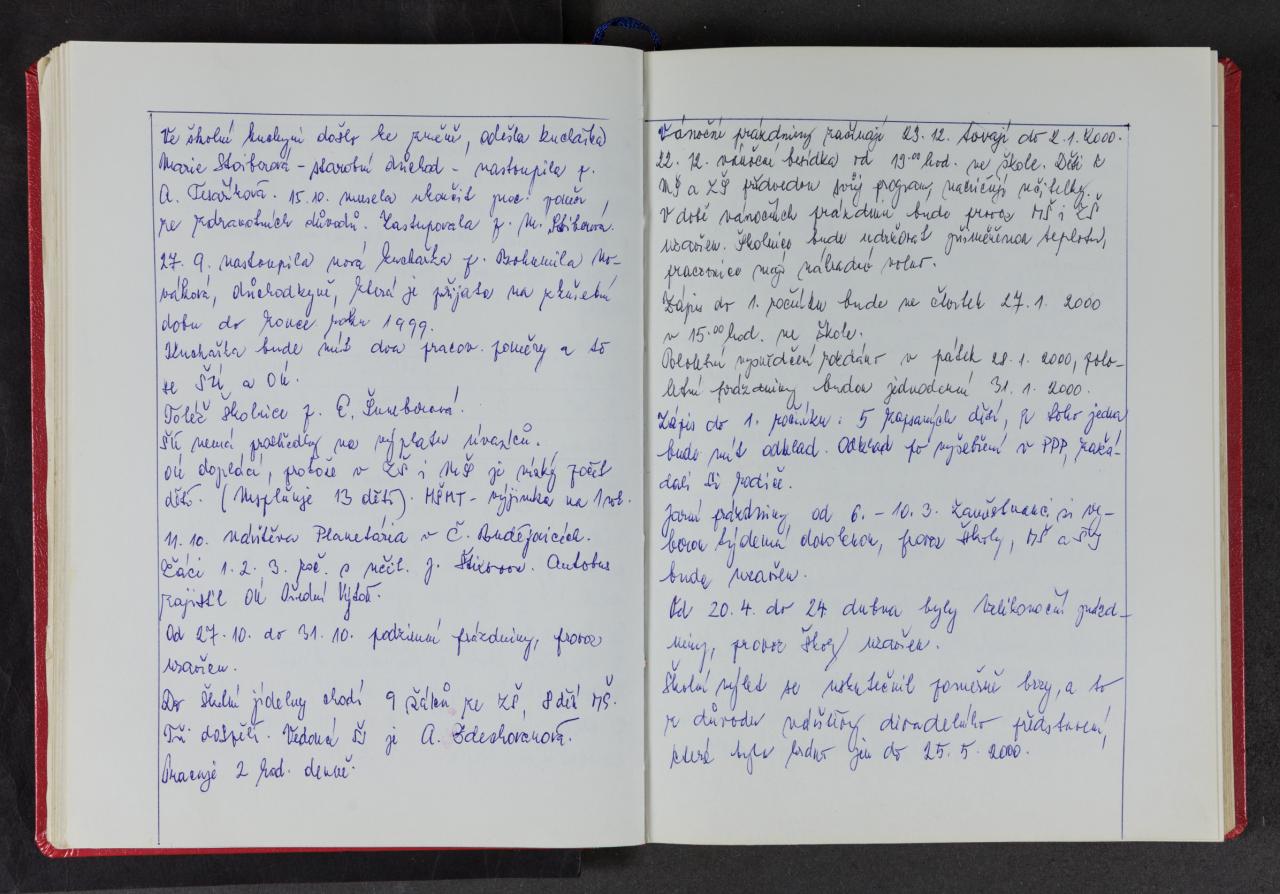 Ve školní kuchyni došlo ke změně, odešla kuchařka
Marie Stoiberová - starobní důchod - nastoupila p.
A. Tesaříková. 15.10. musela ukončit prac. poměr
ze zdravotních důvodů. Zastupovala p. M. Stiborová.
27. 9. nastoupila nová kuchařka p. Bohumila No-
váková, důchodkyně, která je přijata na zkušební
dobu do konce roku 1999.
Kuchařka bude mít dva pracov. poměry a to
se ŠÚ a OÚ.
Totéž školnice p. E. Šumberová.
ŠÚ nemá prostředky na výplatu úvazků.
OÚ doplácí, protože v ZŠ i MŠ je nízký počet
dětí. (Nesplňuje 13 dětí). MŠMT - výjimka na 1 rok.
11. 10. návštěva Planetária v Č. Budějovicích.
Žáci 1. 2. 3. roč. s učit. J. Autobus
zajistil OÚ Přední Výtoň.
Od 27. 10. do 31. 10. podzimní prázdniny, provoz
uzavřen.
Do školní jídelny chodí 9 žáků ze ZŠ, 8 dětí MŠ.
Tři dospělí. Vedoucí ŠJ je A. Zdeskovanová.
Pracuje 2 hod. denně.
Vánoční prázdniny začínají 23. 12. trvají do 2. 1. 2000.
22. 12. vánoční besídka od 19.00 hod. ve škole. Děti z
MŠ a ZŠ předvedou svůj program, nacvičují učitelky.
V době vánočních prázdnin bude provoz MŠ i ZŠ
uzavřen. Školnice bude udržovat přiměřenou teplotu,
pracovnice mají náhradní volno.
Zápis do 1. ročníku bude ve čtvrtek 27. 1. 2000
v 15.00 hod. ve škole.
Pololetní vysvědčení rozdáno v pátek 28. 1. 2000, polo-
letní prázdniny budou jednodenní 31. 1. 2000.
Zápis do 1. ročníku: 5 zapsaných dětí, z toho jedna
bude mít odklad. Odklad po vyšetření v PPP, zažá-
dali si rodiče.
Jarní prázdniny od 6. - 10. 3. Zaměstnanci si vy-
berou týdenní dovolenou, provoz školy, MŠ a ŠJ
bude uzavřen.
Od 20. 4. do 24 dubna byly Velikonoční prázd-
niny, provoz školy uzavřen.
Školní výlet se uskutečnil poměrně brzy, a to
z důvodu návštěvy divadelního představení,
které bylo hráno jen do 25. 5. 2000.